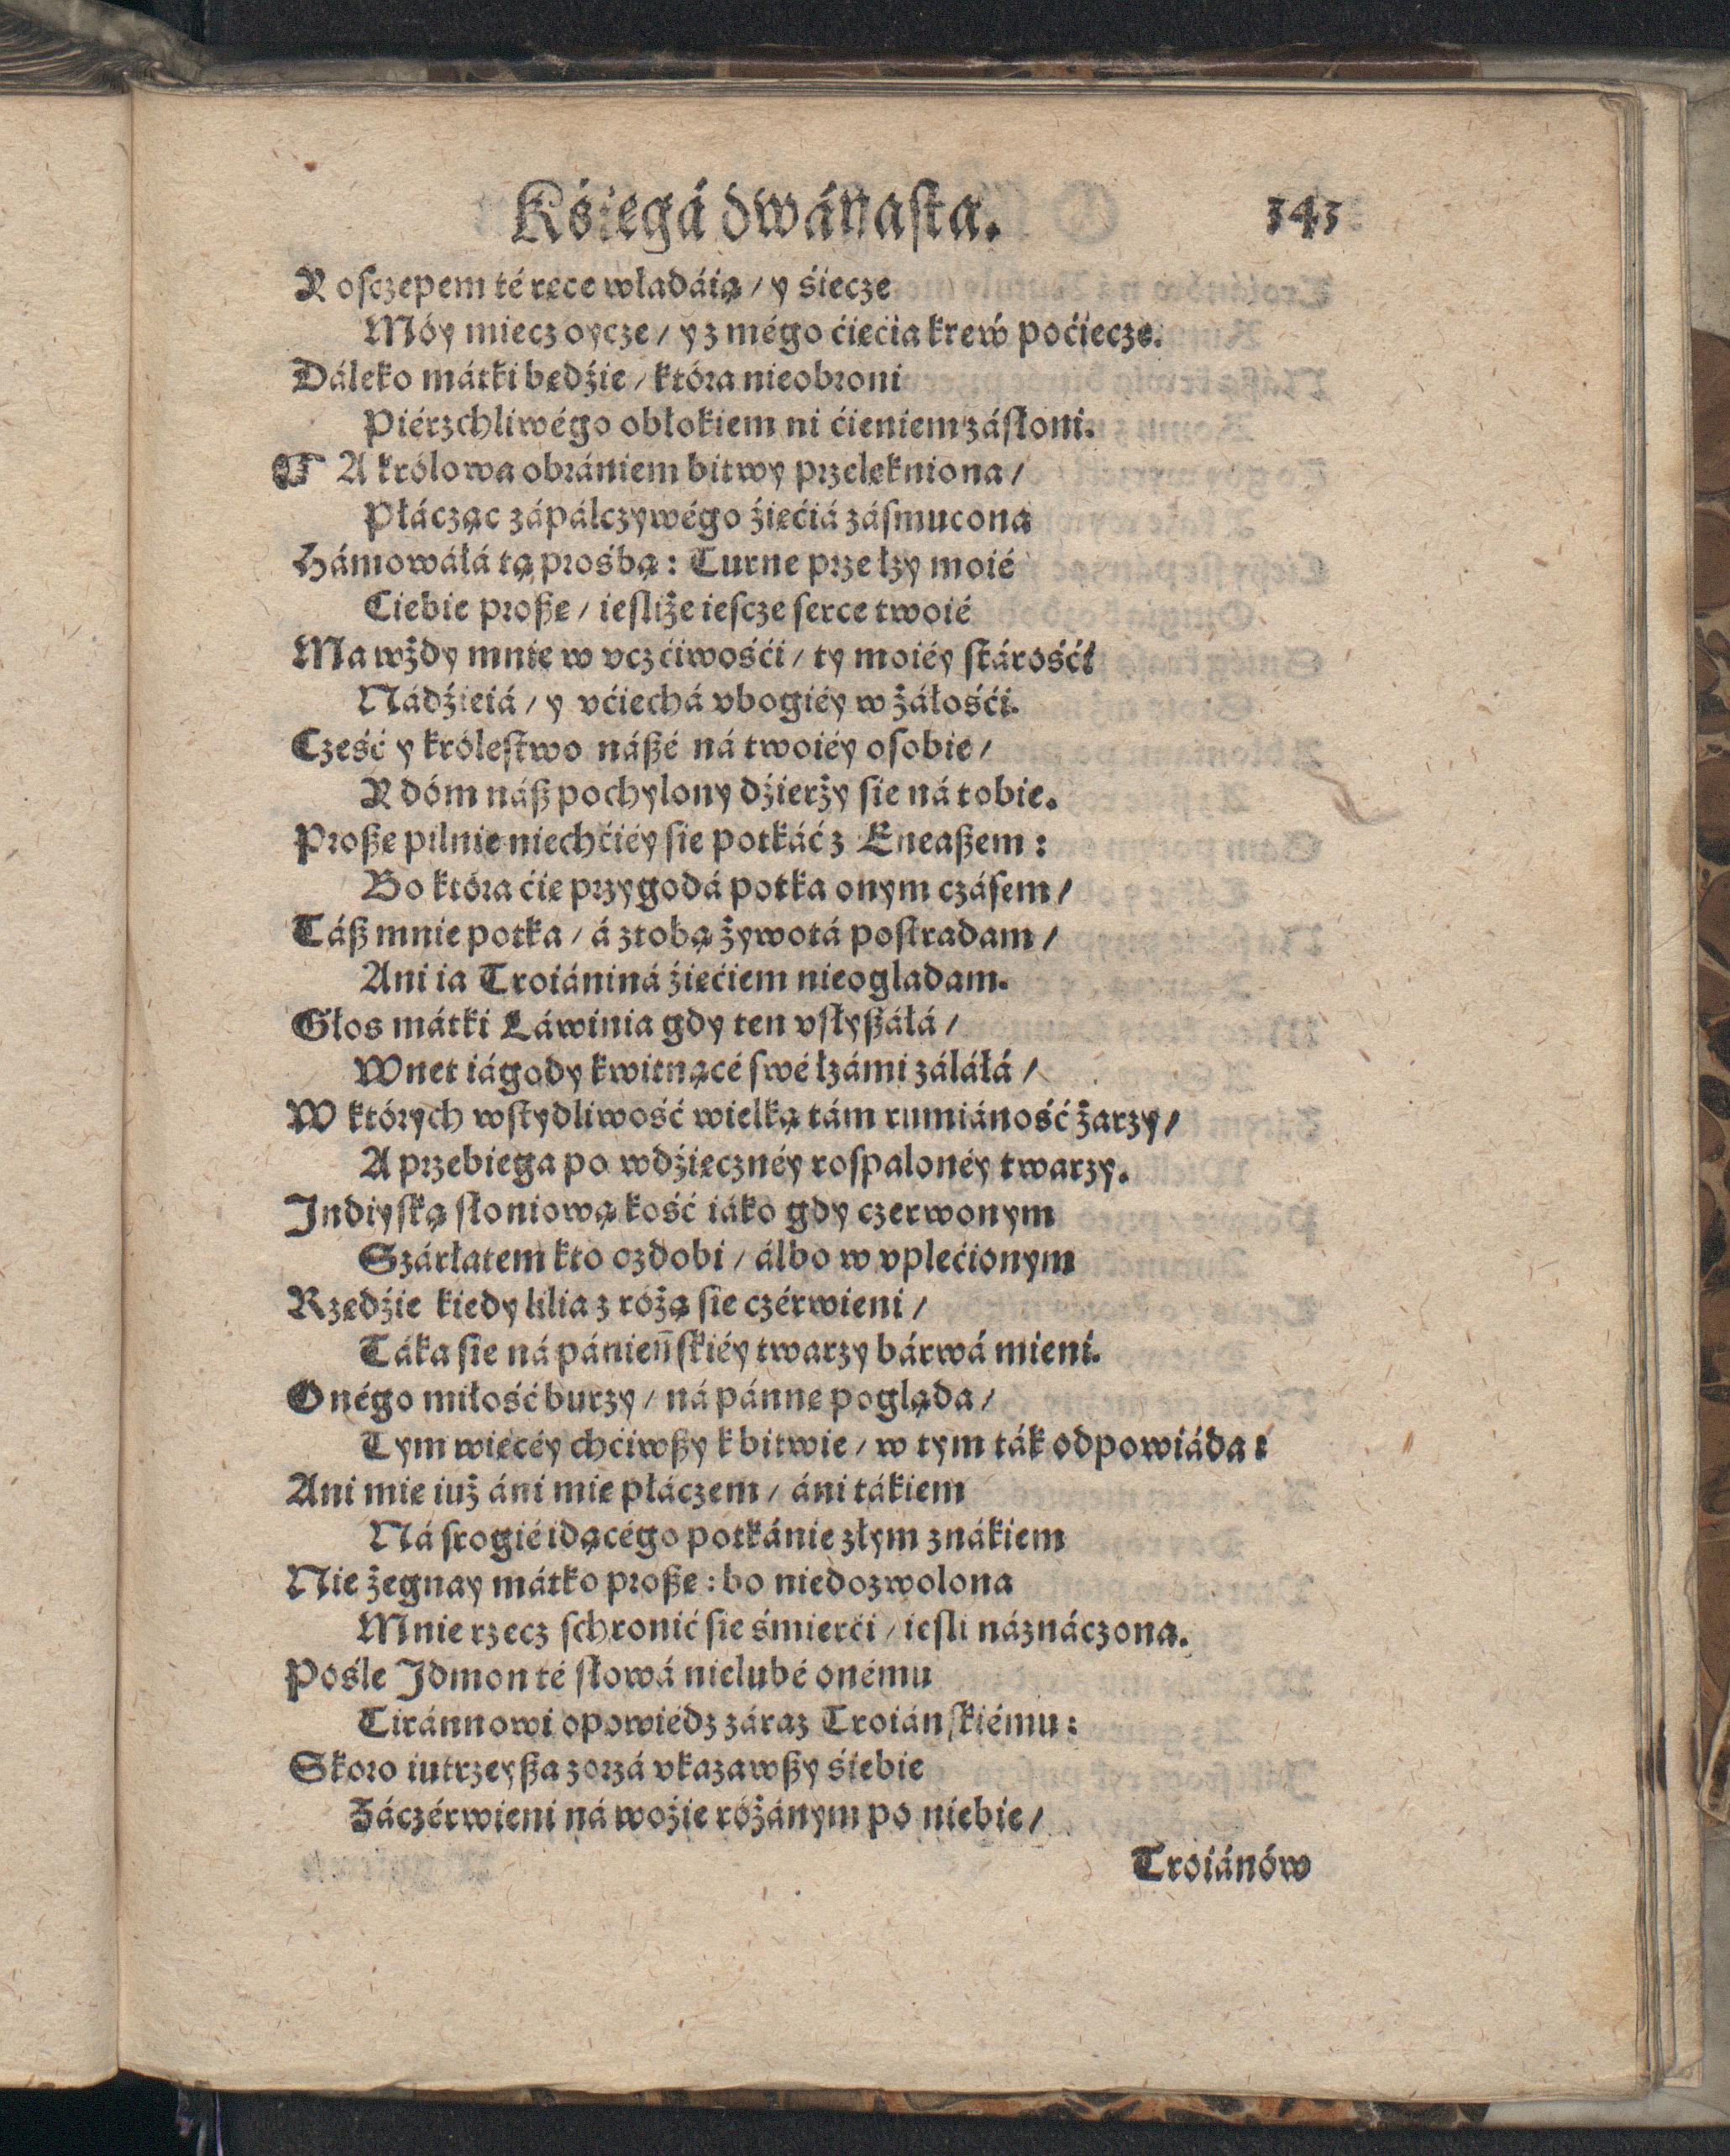 Kśięgá dwánasta. 343
Y osczepem té ręce władáią / y śiecze
Móy miecz oycze / y z mégo ćięćia krew poćiecze.
Dáleko mátki będźie / która nieobroni
Piérzchliwégo obłokiem ni ćieniem zásłoni.
¶ A królowa obrániem bitwy przelękniona /
Płácząc zápálczywégo źięćiá zásmucona
Hámowáłá tą prośbą : Turne prze łzy moié
Ciebie proszę / iesliże iescze serce twoié
Ma wżdy mnię w vczćiwośći / ty moiéy stárośći
Nádźieiá / y vćiechá vbogiéy w żáłośći.
Cześć y królestwo nászé ná twoiéy osobie /
Y dóm nász pochylony dźierży sie ná tobie.
Proszę pilnie niechćiéy sie potkáć z Eneaszem :
Bo która ćie przygodá potka onym czásem /
Tász mnie potka / á ztobą żywotá postradam /
Ani ia Troiániná źięćiem nieogladam.
Głos mátki Láwinia gdy ten vsłyszáłá /
Wnet iágody kwitnącé swé łzámi záláłá /
W których wstydliwość wielką tám rumiáność żarzy /
A przebiega po wdźięcznéy rospalonéy twarzy.
Indiyską słoniową kość iáko gdy czerwonym
Szárłatem kto ozdobi / álbo w vplećionym
Rzędźie kiedy lilia z różą sie czérwieni /
Táka sie ná pánieńskiéy twarzy bárwá mieni.
Onégo miłość burzy / ná pánnę pogląda /
Tym więcéy chćiwszy k bitwie / w tym ták odpowiáda :
Ani mie iuż áni mie płáczem / áni tákiem
Ná srogié idącégo potkánie złym znákiem
Nie żegnay mátko proszę : bo niedozwolona
Mnie rzecz schronić sie śmierći / iesli náznáczona.
Pośle Idmon té słowá nielubé onému
Tiránnowi opowiédz záraz Troiánskiému :
Skoro iutrzeysza zorzá vkazawszy śiebie
Záczérwieni ná woźie różánym po niebie /
Troiánów